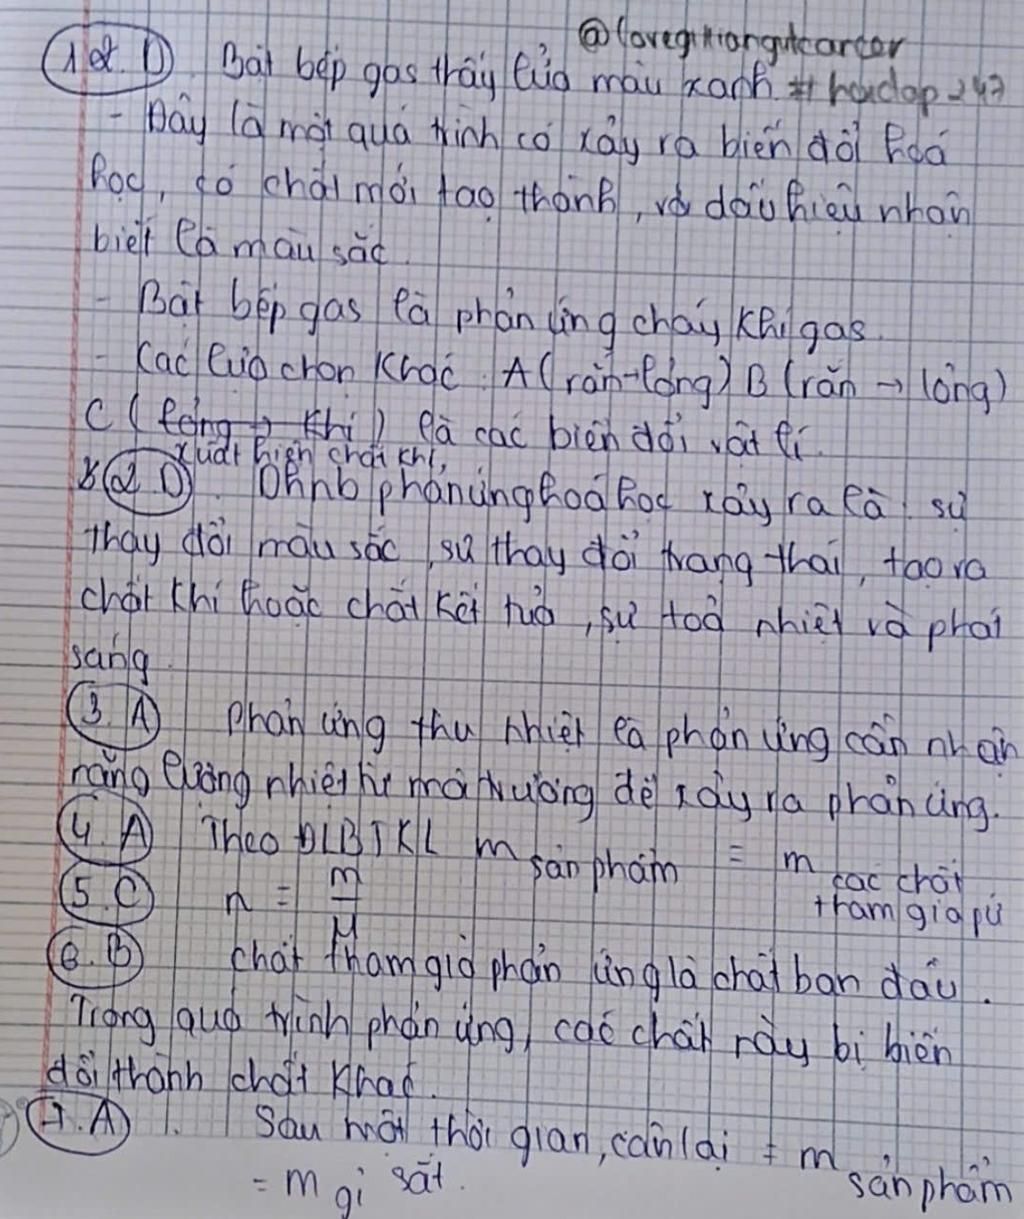 @lovegittiangutcarcer
1. D Bật bếp gas thấy lửa màu xanh #hoidap247
- Đây là một quá trình có xảy ra biến đổi hoá
học, có chất mới tạo thành, và dấu hiệu nhận
biết là màu sắc.
- Bật bếp gas là phản ứng cháy khí gas.
- Các lựa chọn khác. A (rắn-lỏng) B (rắn → lỏng)
C (lỏng → khí) là các biến đổi vật lí.
xuất hiện chất khí,
2 D. Dhnb phản ứng hoá học xảy ra là: sự
thay đổi màu sắc, sự thay đổi trạng thái, tạo ra
chất khí hoặc chất kết tủa, sự toả nhiệt và phát
sáng.
3. A Phản ứng thu nhiệt là phản ứng cần nhận
năng lượng nhiệt từ môi trường để xảy ra phản ứng.
4. A Theo ĐLBTKL m sản phẩm = m các chất
tham gia pứ
5. C n = m/M
6. B Chất tham gia phản ứng là chất ban đầu.
Trong quá trình phản ứng, các chất này bị biến
đổi thành chất khác.
7. A 1. Sau một thời gian, cân lại = m sản phẩm
= m gỉ sắt.